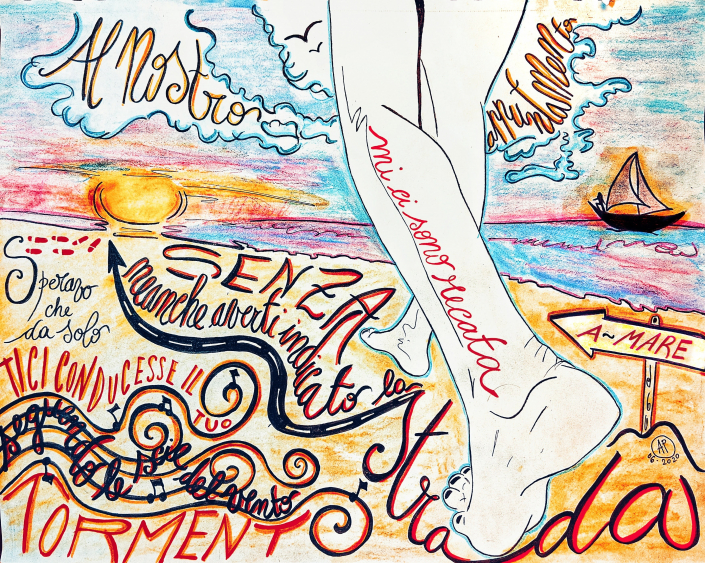 Al nostro
appuntamento
mi ci sono recata
SENZA
neanche averti indicato la
strada
A~MARE
Speravo
che
da solo
TICI CONDUCESSE IL
TUO
seguendo le scie del vento
TORMENTO
AP
06.2020